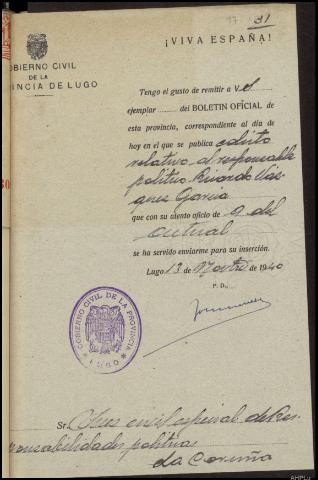 17 31
¡VIVA ESPAÑA!
OBIERNO CIVIL
DE LA
INCIA DE LUGO
Tengo el gusto de remitir a V. el
ejemplar ........ del BOLETIN OFICIAL de
esta provincia, correspondiente al día de
hoy en el que se publica edicto
relativo al responsable
politico Ricardo Vás-
quez Garcia
que con su atento oficio de 9 del
actual
se ha servido enviarme para su inserción.
Lugo 13 de de 1940
P. D.,
GOBIERNO CIVIL DE LA PROVINCIA
LUGO
Sr. Juez civil especial de Res-
ponsabilidades politicas
La Coruña
AHPLu